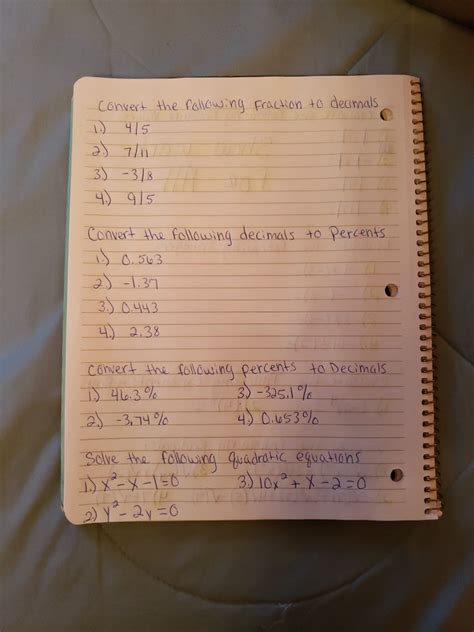 Convert the following Fraction to decimals
1.) 4/5
2) 7/11
3) -3/8
4.) 9/5
Convert the following decimals to Percents
1.) 0.563
2) -1.37
3.) 0.443
4.) 2.38
Convert the following percents to Decimals
1) 46.3% 3) -325.1%
2) -3.74% 4) 0.653%
Solve the following quadratic equations
1.) x²-x-1=0 3) 10x²+x-2=0
2) y²-2y=0